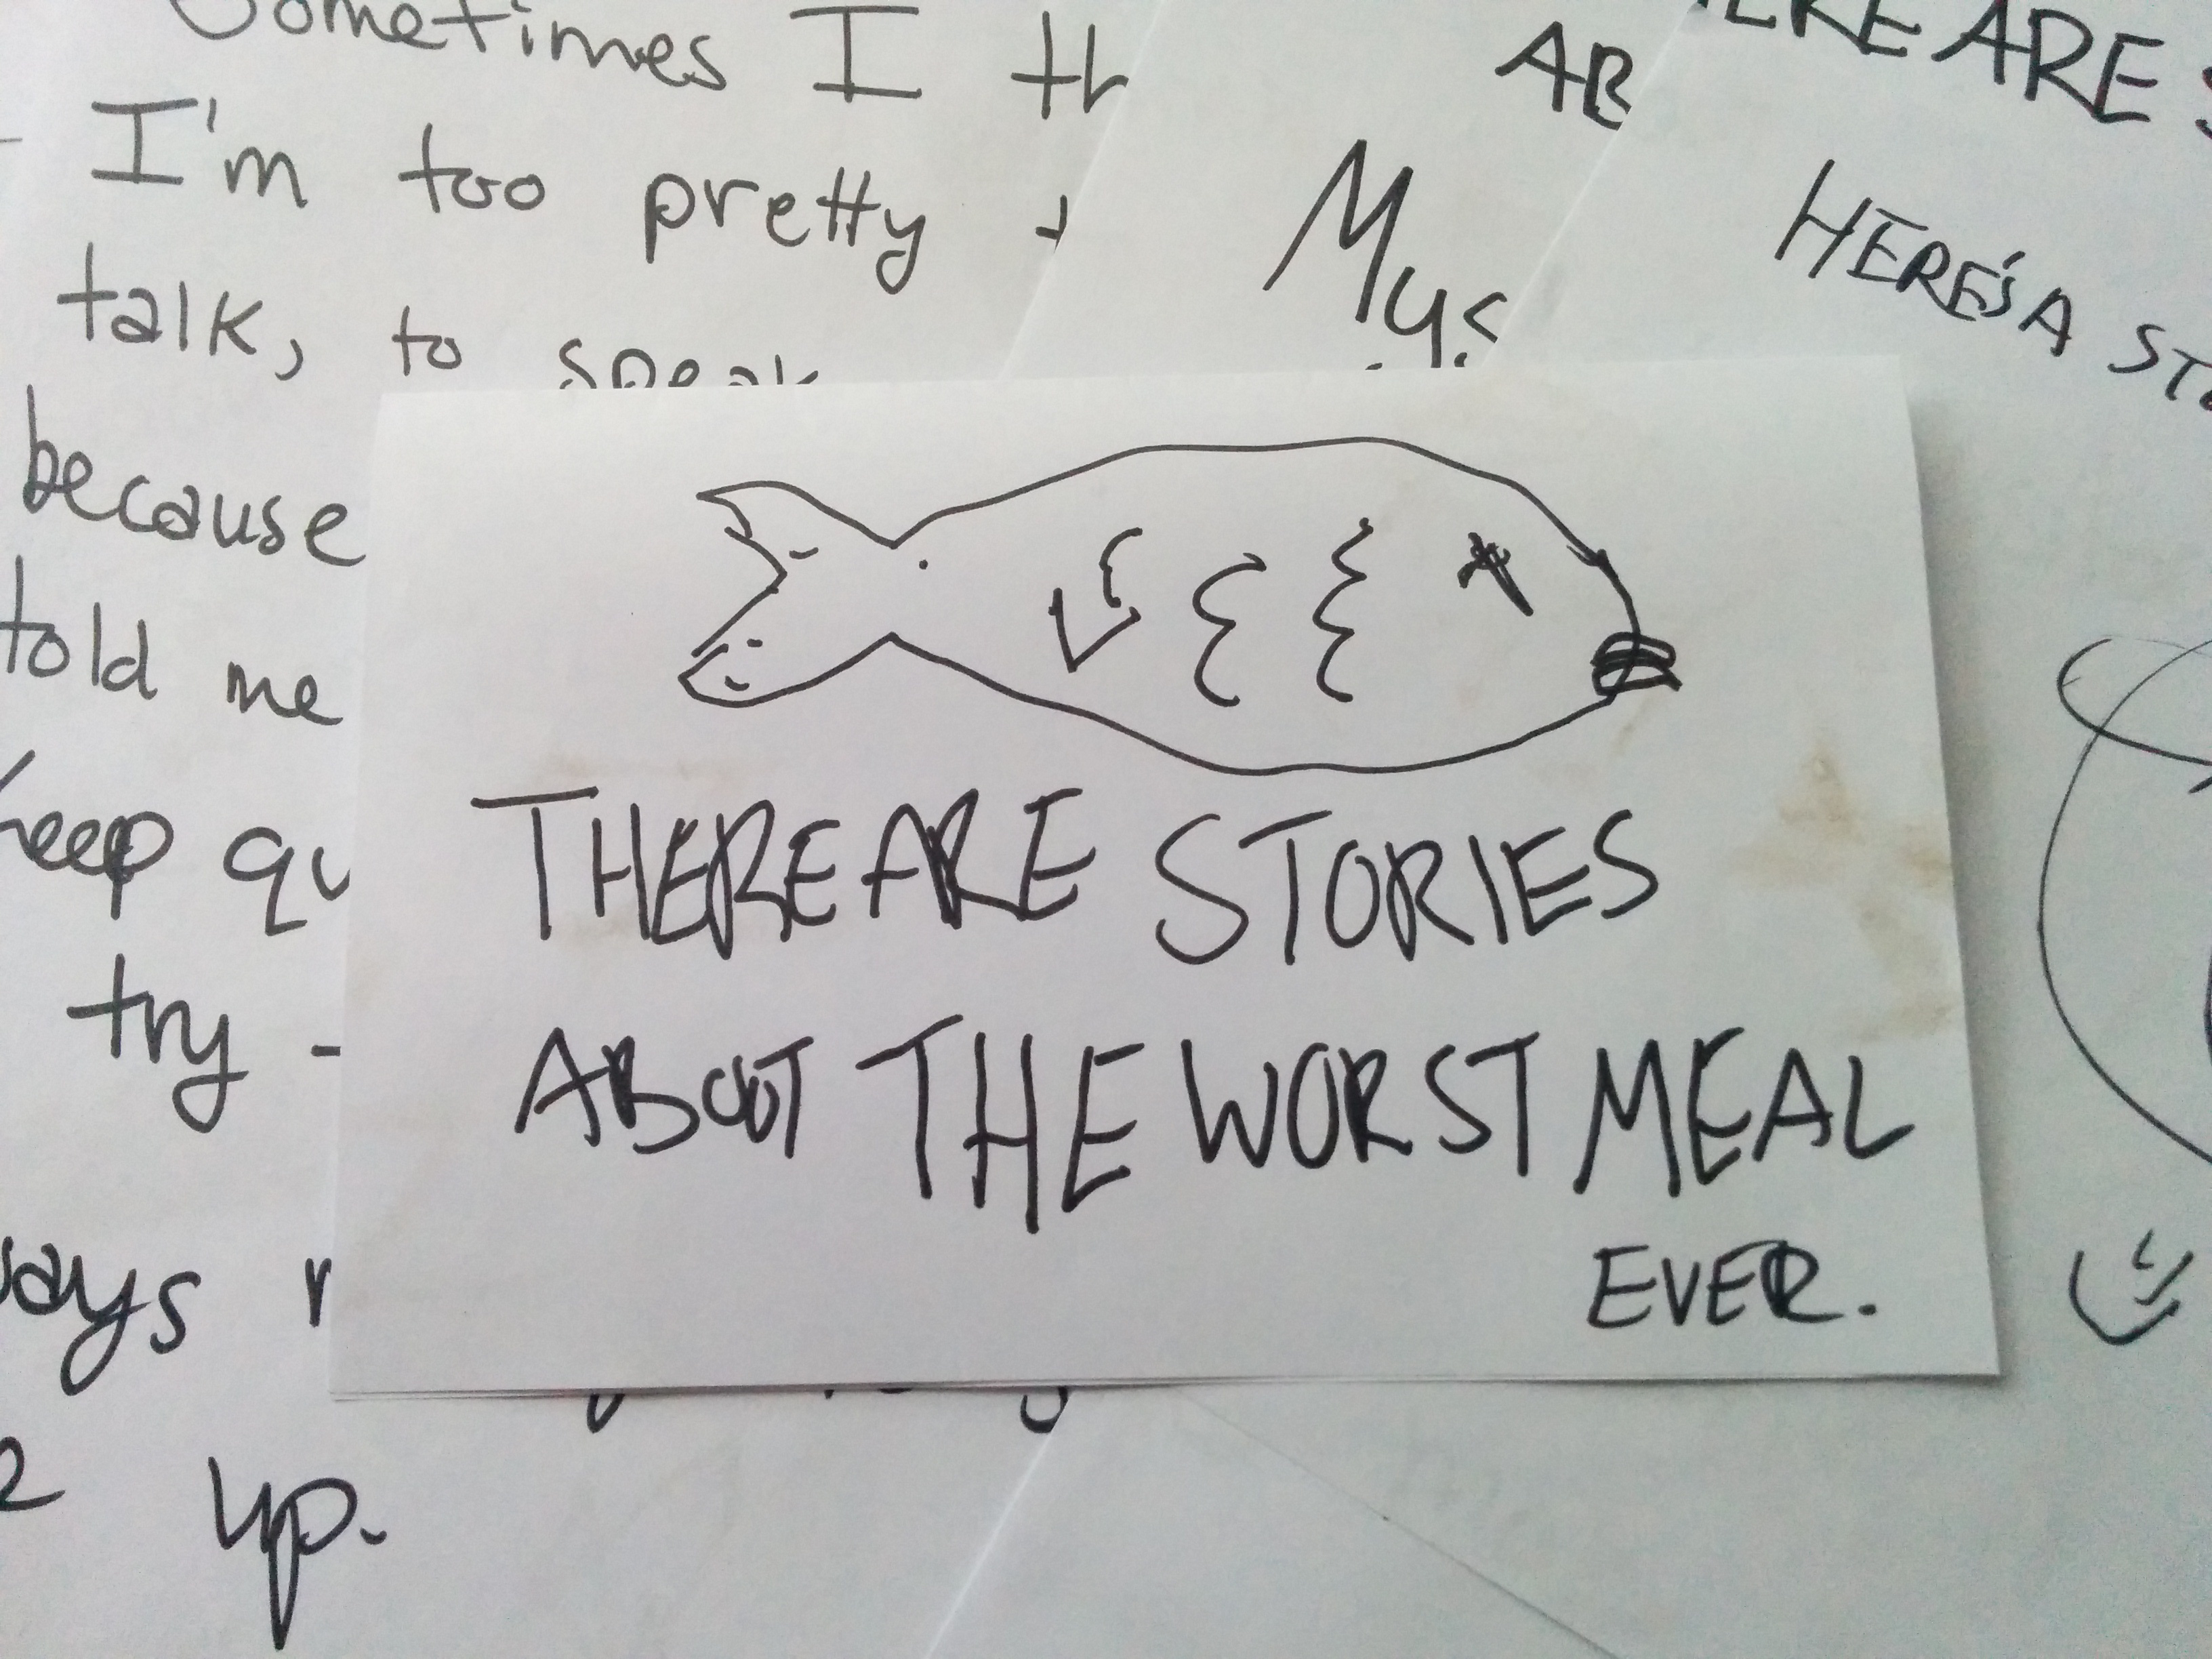 Sometimes I
I'm too pretty
talk, to speak
because
told me
keep
try -
up.
AB
Mys
ARE
HERE'S A
THERE ARE STORIES
ABOUT THE WORST MEAL
EVER.